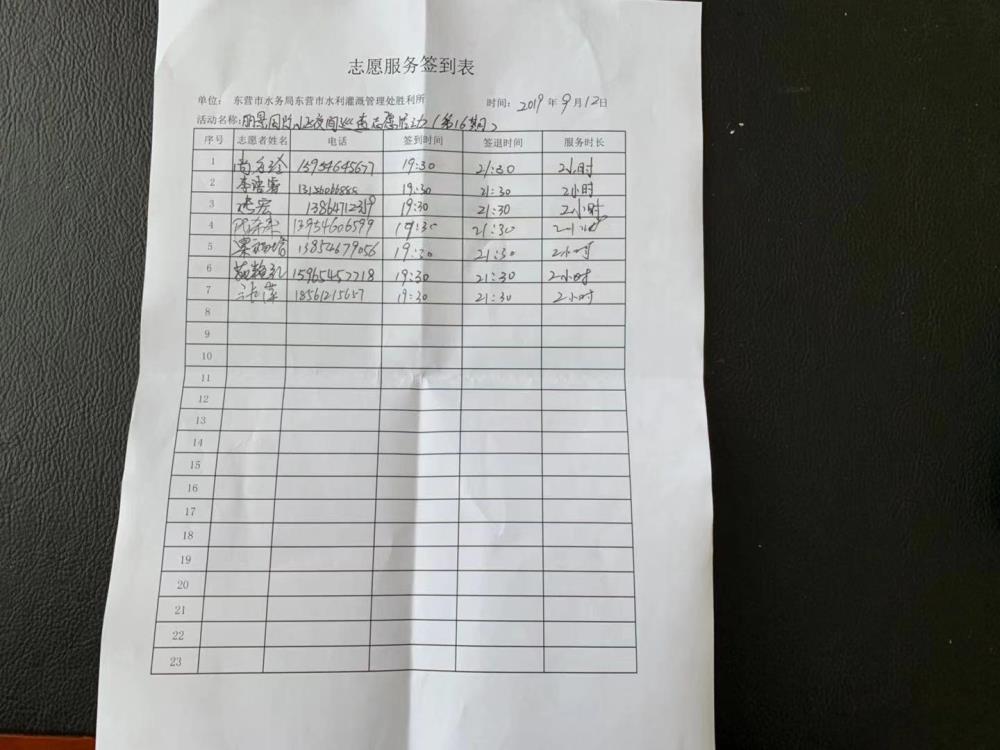 志愿服务签到表
单位： 东营市水务局东营市水利灌溉管理处胜利所 时间：2019年9月12日
活动名称：小区夜间巡查志愿活动（第16期）
序号 志愿者姓名 电话 签到时间 签退时间 服务时长
1 15954645677 19:30 21:30 2小时
2 19:30 21:30 2小时
3 19:30 21:30 2小时
4 13954606599 19:30 21:30 2小时
5 13854679056 19:30 21:30 2小时
6 19:30 21:30 2小时
7 18561215657 19:30 21:30 2小时
8
9
10
11
12
13
14
15
16
17
18
19
20
21
22
23